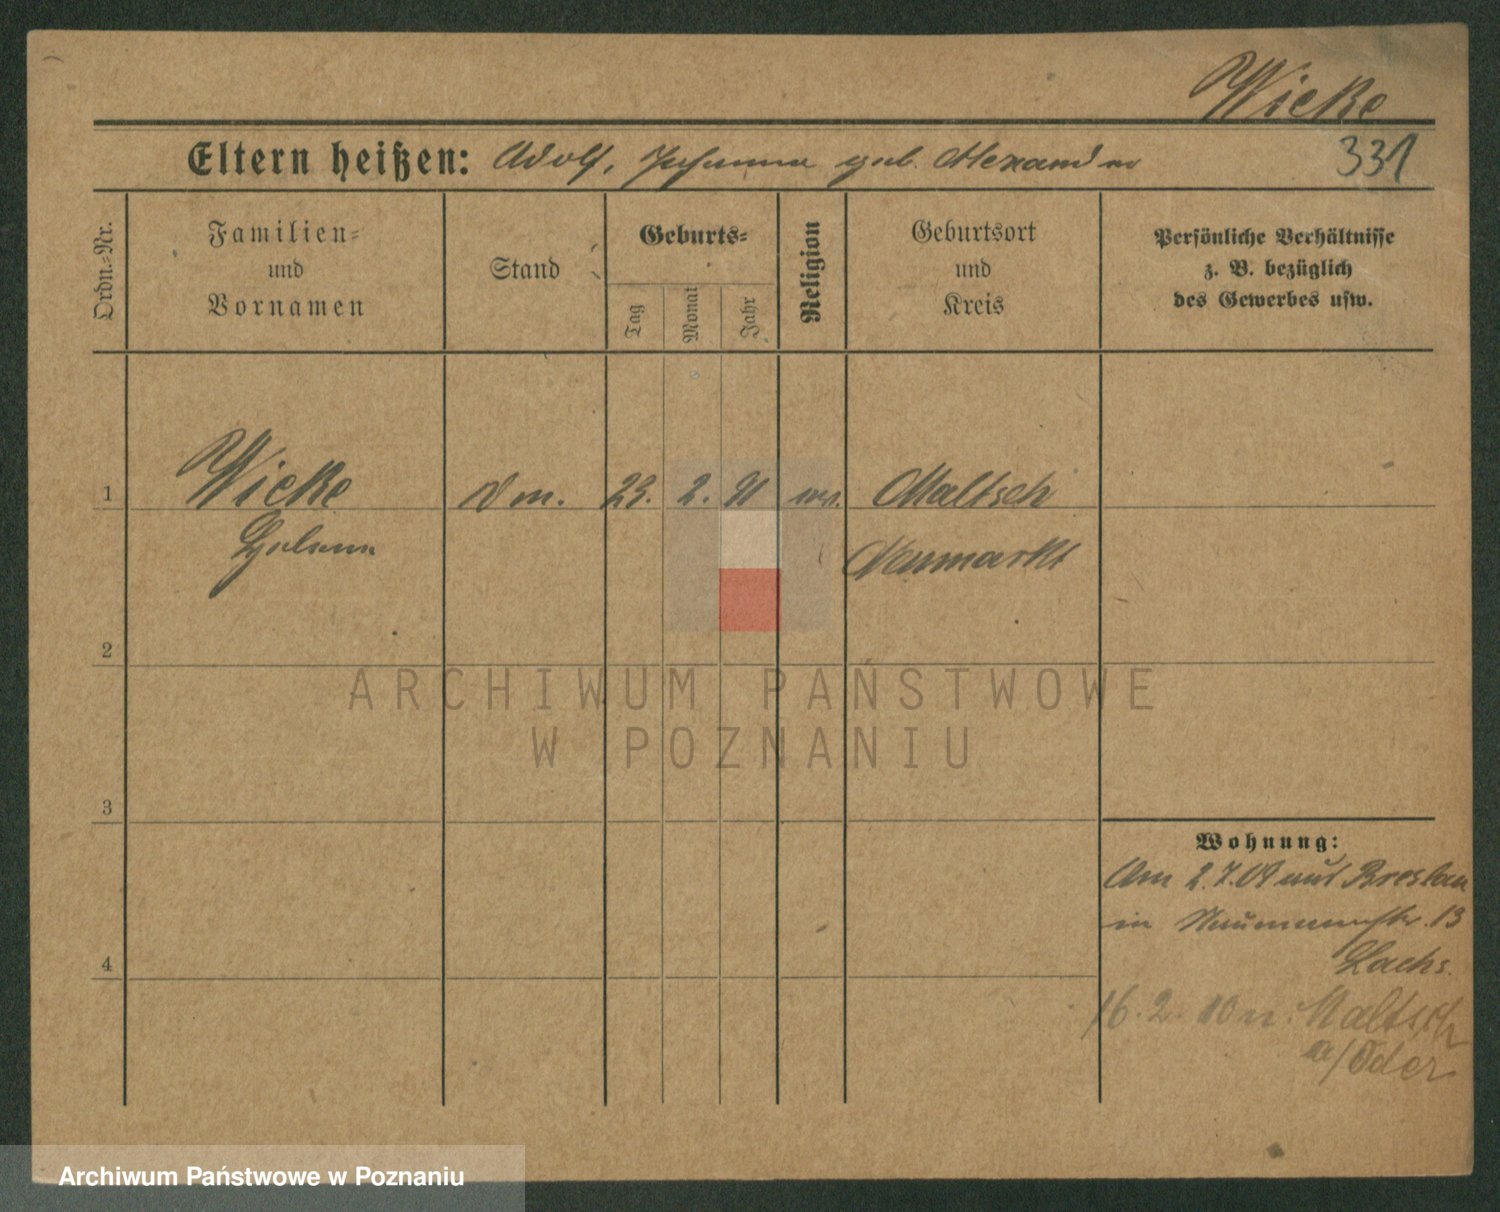 Wicke
Eltern heißen: Adolf, Johanna geb. Alexander
331
Ordn.=Nr.
Familien=
und
Vornamen
Stand
Geburts=
Tag
Monat
Jahr
Religion
Geburtsort
und
Kreis
Persönliche Verhältnisse
z. B. bezüglich
des Gewerbes usw.
1 Wicke 23. 2. 91 Maltsch
Helene Neumarkt
2
3
4
ARCHIWUM PAŃSTWOWE
W POZNANIU
Wohnung:
Am 2.7.09 aus Breslau
in Naumannstr. 13
16. 2. 10 n. Maltsch
a/Oder
Archiwum Państwowe w Poznaniu